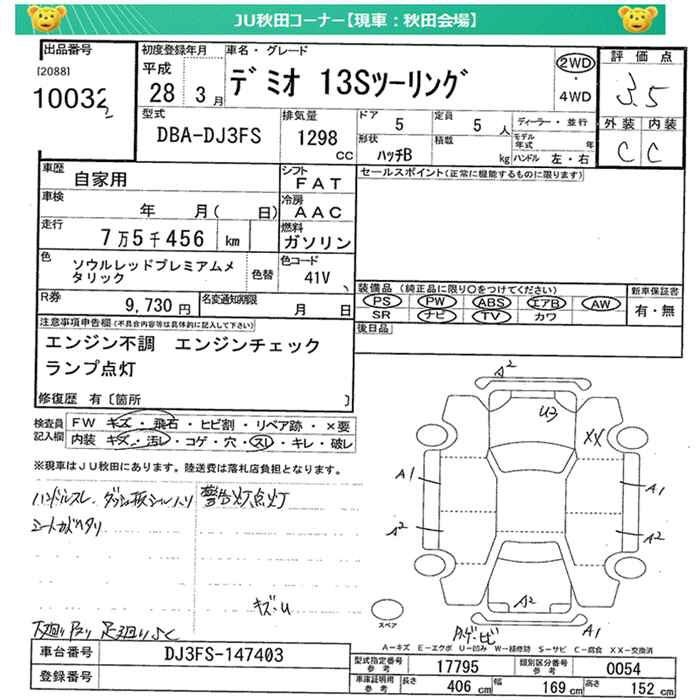 JU秋田コーナー【現車：秋田会場】
出品番号
[2088]
10032
初度登録年月
平成
28 3月
車名・グレード
デミオ 13Sツーリング
2WD
4WD
評価点
3.5
外装 内装
C C
型式
DBA-DJ3FS
排気量
1298
CC
ドア 5
定員 5人
形状
ハッチB
積載
kg
ディーラー・並行
モデル年式 年
ハンドル 左・右
車歴
自家用
シフト
FAT
車検
年 月( 日)
冷房
AAC
走行
7万5千456 km
燃料
ガソリン
色
ソウルレッドプレミアムメタリック
色替
色コード
41V
R券
9,730円
名変通知期限
月 日
セールスポイント(正常に機能するものに限ります)
装備品 (純正品に限り○をつけてください)
PS PW ABS エアB AW
SR ナビ TV カワ
新車保証書
有・無
後日品
注意事項申告欄(不具合内容等は具体的に記入して下さい)
エンジン不調 エンジンチェック
ランプ点灯
修復歴 有 [箇所
検査員
記入欄
FW キズ・飛石・ヒビ割・リペア跡・×要
内装 キズ・汚レ・コゲ・穴・スレ・キレ・破レ
※現車はJU秋田にあります。陸送費は落札店負担となります。
ハンドルスレ、
警告灯点灯
シートカドヘタリ
キズ・U
A2
U3
XX
A1
A1
A2
A2
A2
A1
スペア
A－キズ E－エクボ U－凹み W－補修跡 S－サビ C－腐食 XX－交換済
車台番号
DJ3FS-147403
登録番号
型式指定番号
参考
17795
類別区分番号
参考
0054
車庫証明用
参考
長さ 406 cm
幅 169 cm
高さ 152 cm